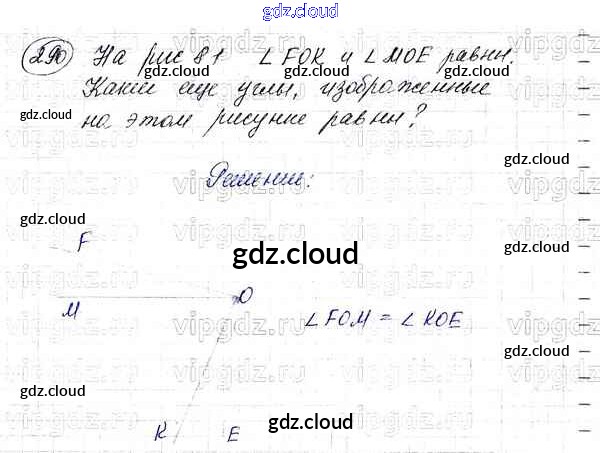 gdz.cloud
290 На рис 81 ∠FOK и ∠MOE равны.
Какие еще углы, изображенные
на этом рисунке равны?
Решение:
F
M
O
∠FOM = ∠KOE
K E
gdz.cloud
gdz.cloud
gdz.cloud
gdz.cloud
gdz.cloud
gdz.cloud
gdz.cloud
gdz.cloud
gdz.cloud
gdz.cloud
vipgdz.ru
vipgdz.ru
vipgdz.ru